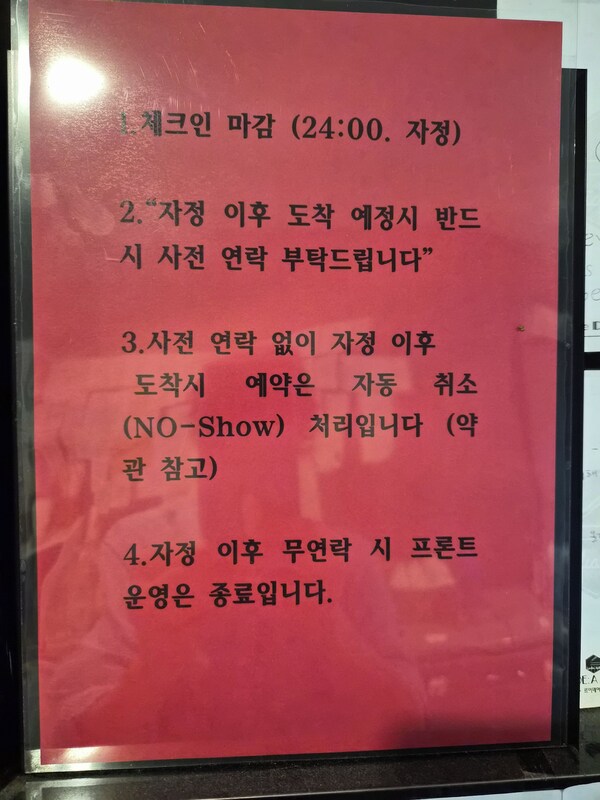 1.체크인 마감 (24:00. 자정)
2.“자정 이후 도착 예정시 반드
시 사전 연락 부탁드립니다”
3.사전 연락 없이 자정 이후
도착시 예약은 자동 취소
(NO-Show) 처리입니다 (약
관 참고)
4.자정 이후 무연락 시 프론트
운영은 종료입니다.